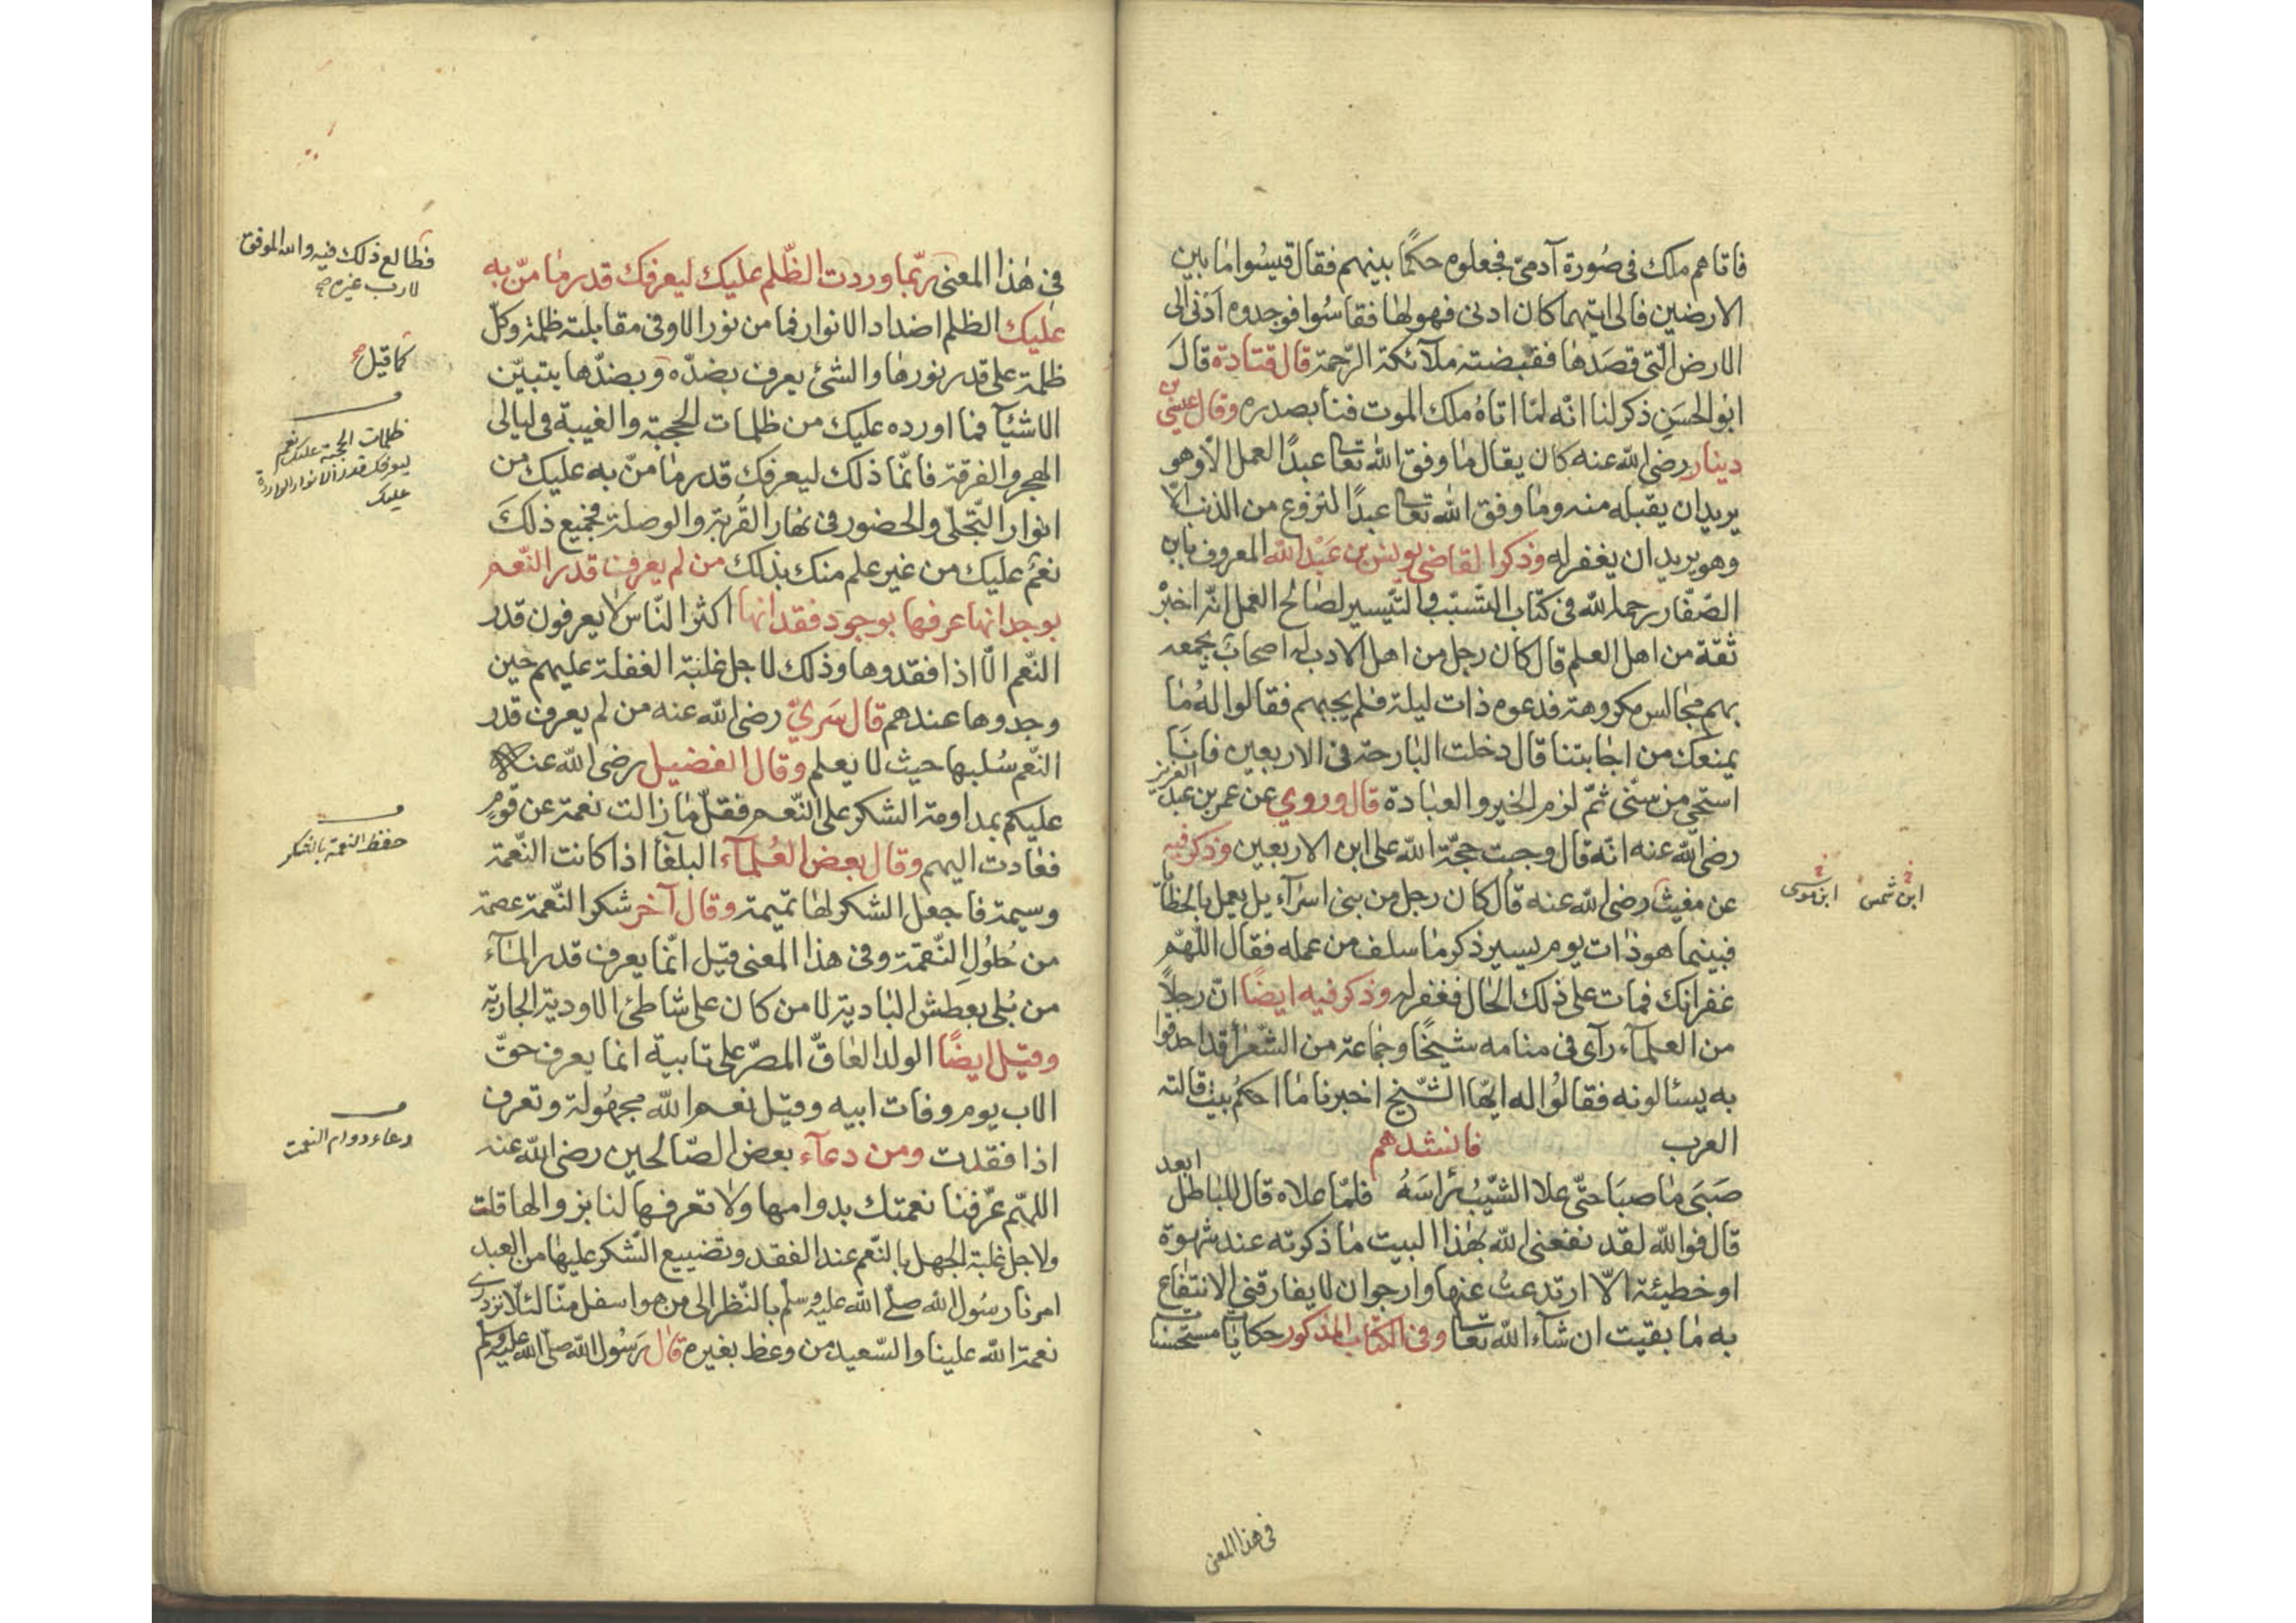 فاتاهم ملك فى صُورة آدمىّ فجعلوه حكمًا بينهم فقال قيسُوا ما بين
الارضين فالى ايتهما كان ادنى فهو لها فقاسُوا فوجدوه اَدْنى الى
الارض الّتى قصَدها فقبضته ملآئكة الرّحمة قال قتادة قالَ
ابو الحسَنِ ذكر لنا انّه لمّا اتاهُ ملك الموت فنأ بصدره وقال عيسى بن
دينار رضى الله عنه كان يقال ما وفق الله تعا عبدًا العمل الّا وهو
يريد ان يقبله منه وما وفق الله تعا عبدًا لنزوع من الذنب الّا
وهو يريد ان يغفر له وذكر القاضى يونس بن عَبْد الله المعروف بابن
الصّفّار رحمه الله فى كتاب التسّبّب والتّيسير لصَالح العمل انّه اخبرْ
ثقة من اهل العلم قال كان رجل من اهل الادب له اصحابٌ يجمعه
بهم مجالس مكروهة فدعوه ذات ليلة فلم يجبهم فقالوا لهُ ما
يمنعك من اجابتنا قال دخلت البارحة فى الاربعين فانَا
استحى من سنّى ثمّ لزم الخير والعبادة قال وروي عن عمر بن عبد العزيز
رضى الله عنه انّه قال وجبت حجّة الله على ابن الاربعين وذكر فيه
عن مغيث رضى الله عنه قال كان رجل من بنى اسرآءيل يعمل بالخطايا
ابن شمس ابن موسى
فبينما هو ذات يوم يسير ذكر ما سلف من عمله فقال اللهّم
غفرانك فمات على ذلك الحال فغفر له وذكر فيه ايضًا انّ رجلاً
من العلمآء رآى فى منامه شيخًا وجماعة من الشّعرأ قد احدقوا
به يسئالونه فقالُوا له ايّها الشّيخ اخبرنا ما احكُم بيت قالته
العرب فانشدهم
صَبَى ما صبَا حتّى علا الشّيبُ رَاسَهُ فلمّا علاه قال للباطل ابعد
قال فوالله لقد نفعنى الله بهٰذا البيت ما ذكرته عند شهوة
او خطيئة الّا ارتدعتُ عنها وارجو ان لا يفارقنى الانتفاع
به ما بقيت ان شآء الله تعا وفى الكتاب المذكور حكايات مستحسنا
فى هذا المعنى
فى هٰذا المعنى ربّما وردت الظّلم عليك ليعرفك قدر ما منّ به
فطالع ذلك فيه والله الموفق
لا رب غيره صح
عليك الظلم اضداد الانوار فما من نور الا وفى مقابلته ظلمة وكلّ
ظلمة على قدر نورها والشئ يعرف بضدّه وبضدّها يتبيّن
كما قيل صح
الاشيَآ فما اورده عليك من ظلمات الحجبة والغيبة فى ليالى
ظلمات الحجبة عليك نعم
ليعرفك قدر الانوار الواردة
عليك
الهجر والفرقة فانّما ذلك ليعرفك قدر ما منّ به عليك من
انوار التّجلّى والحضور فى نهار القُربة والوصلة فجميع ذلكَ
نعمٌ عليك من غير علم منك بذلك من لم يعرف قدر النّعم
بوجدانها عرفها بوجود فقدانها اكثر النّاس لا يعرفون قدر
النّعم الّا اذا فقدوها وذلك لاجل غلبة الغفلة عليهم حين
وجدوها عندهم قال سَريّ رضى الله عنه من لم يعرف قدر
النّعم سُلبها حيث لا يعلم وقال الفضيل رضى الله عنه
عليكم بمداومة الشكر على النّعم فقلّ ما زالت نعمة عن قومٍ
حفظ النعمة بالشكر
فعادت اليهم وقال بعض العُلمآء البلغآ اذا كانت النّعمة
وسيمة فاجعل الشكر لها تميمة وقال آخر شكر النّعمة عصمة
من حُلُولِ النّقمة وفى هذا المعنى قيل انّما يعرف قدر المآء
من بُلى بعطش البادية لا من كان على شاطئ الاودية الجارية
وقيل ايضًا الولد العاقّ المصرّ على تابيه انما يعرف حقّ
الاب يوم وفات ابيه وقيل نعم الله مجهُولة وتعرف
دعاء دوام النعمت
اذا فقدت ومن دعآء بعض الصّالحين رضى الله عنه
اللهمّ عرّفنا نعمتك بدوامها ولا تعرفها لنا بزوالها قلت
ولاجل غلبة الجهل بالنّعم عند الفقد وتضييع الشّكر عليها من العبد
امرنا رسُول الله صلّى الله عليه وسلم بالنّظر الى من هو اسفل منّا لئلّا نزدرى
نعمة الله علينا والسّعيد من وعظ بغيره قال رَسُول الله صلّى الله عليه وسلم